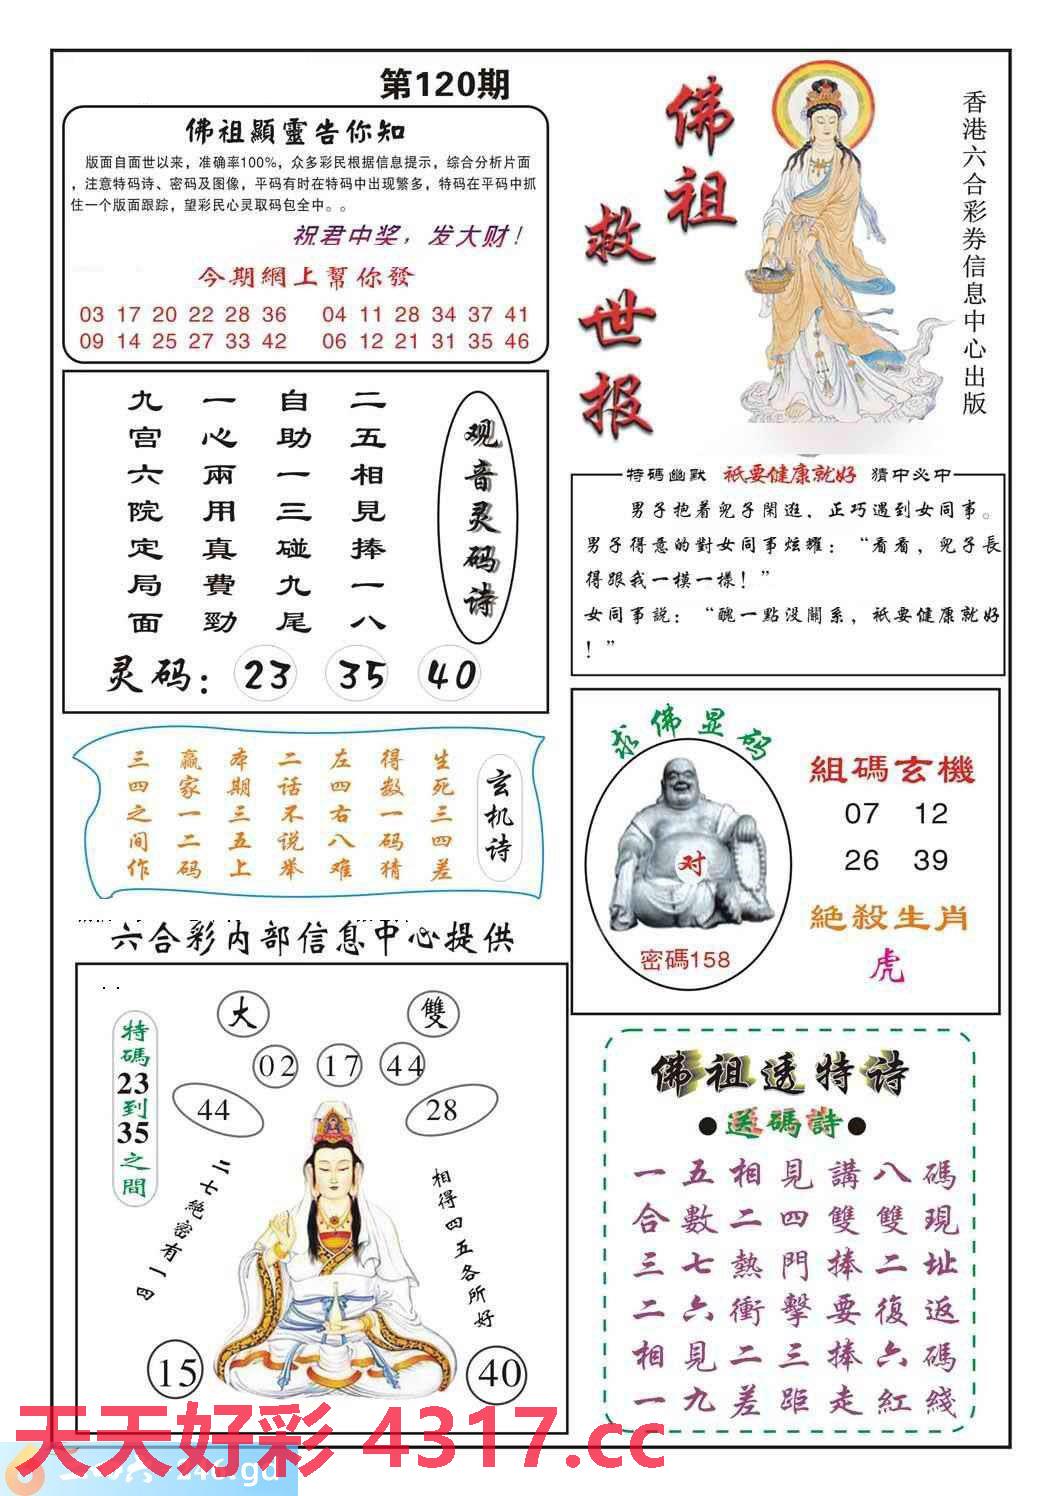 第120期
佛祖顯靈告你知
版面自面世以来，准确率100%，众多彩民根据信息提示，综合分析片面
，注意特码诗、密码及图像，平码有时在特码中出现繁多，特码在平码中抓
住一个版面跟踪，望彩民心灵取码包全中。。
祝君中奖，发大财！
今期網上幫你發
03 17 20 22 28 36 04 11 28 34 37 41
09 14 25 27 33 42 06 12 21 31 35 46
佛祖
救世报
香港六合彩券信息中心出版
观音灵码诗
二五相見捧一八
自助一三碰九尾
一心兩用真費勁
九宫六院定局面
灵码：23 35 40
特碼幽默 祇要健康就好 猜中必中
男子抱着兒子閑逛，正巧遇到女同事。
男子得意的對女同事炫耀：“看看，兒子長
得跟我一模一樣！”
女同事説：“醜一點没關系，祇要健康就好
！”
玄机诗
生死三四差
得数一码猜
左四右八难
二话不说举
本期三五上
赢家一二码
三四之间作
求佛显码
对
密碼158
組碼玄機
07 12
26 39
絶殺生肖
虎
六合彩内部信息中心提供
特碼23到35之間
大 雙
02 17 44
44 28
二七絶密有一四
相得四五各所好
15 40
佛祖透特诗
●送碼詩●
一五相見講八碼
合數二四雙雙現
三七熱門捧二址
二六衝擊要復返
相見二三捧六碼
一九差距走紅綫
天天好彩 4317.cc
246.gd